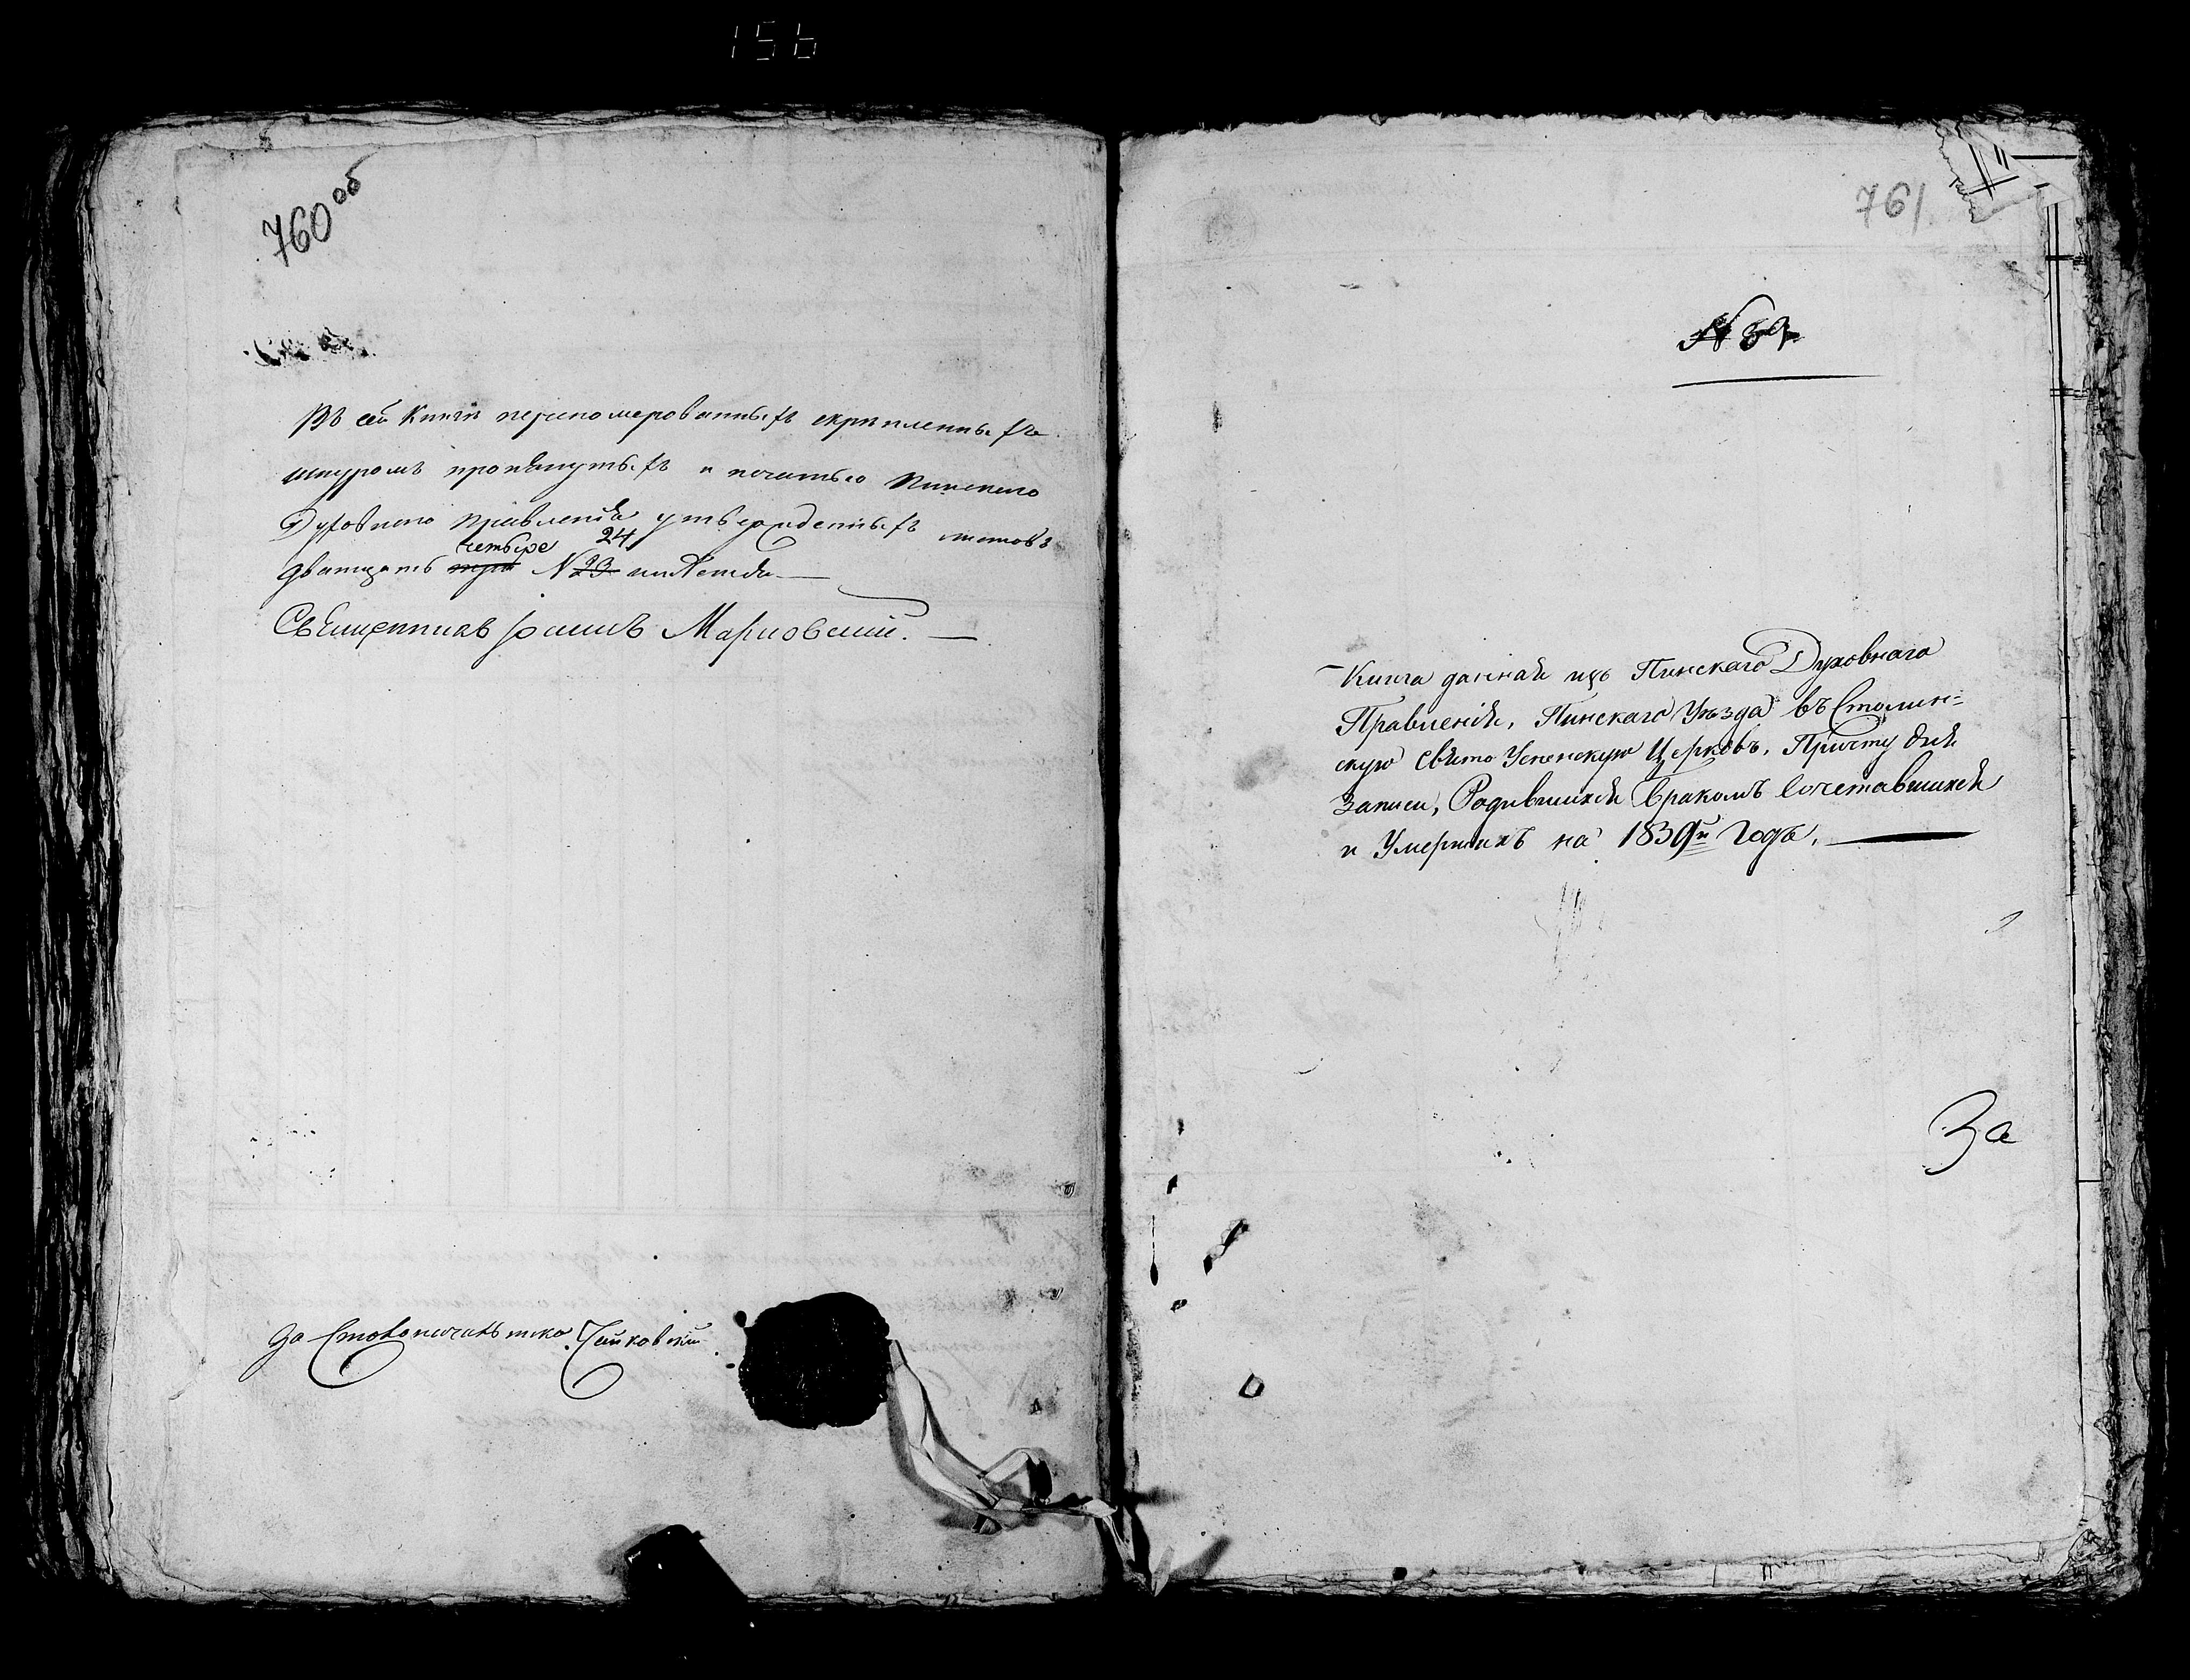 156
760 об
Въ сей Книги переномерованныхъ скрепленныхъ
шнуромъ протянутыхъ и печатью Пинскаго
Духовнаго Правленія утвержденныхъ листовъ
четыре 24
дватцать три N 23 имѣется
Священникъ Іоаннъ Марковский.
За Столоначальника Чайковский
761
N 59
Книга данная изъ Пинскаго Духовнаго
Правленія, Пинскаго Уѣзда въ Столин=
скую Свято Успенскую Церковь, Причту для
Записи, Родившихся Бракомъ Сочетавшихся
и Умершихъ на 1839й Годъ.
За